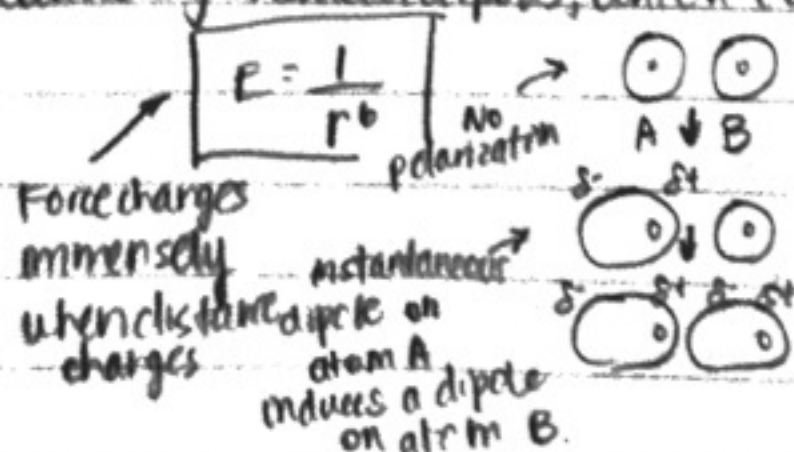 E = 1
r6
No
polarization
A B
Force changes
immensely
when distance
changes
δ- δ+
instantaneous
dipole on
atom A
induces a dipole
on atom B.
δ- δ+ δ- δ+